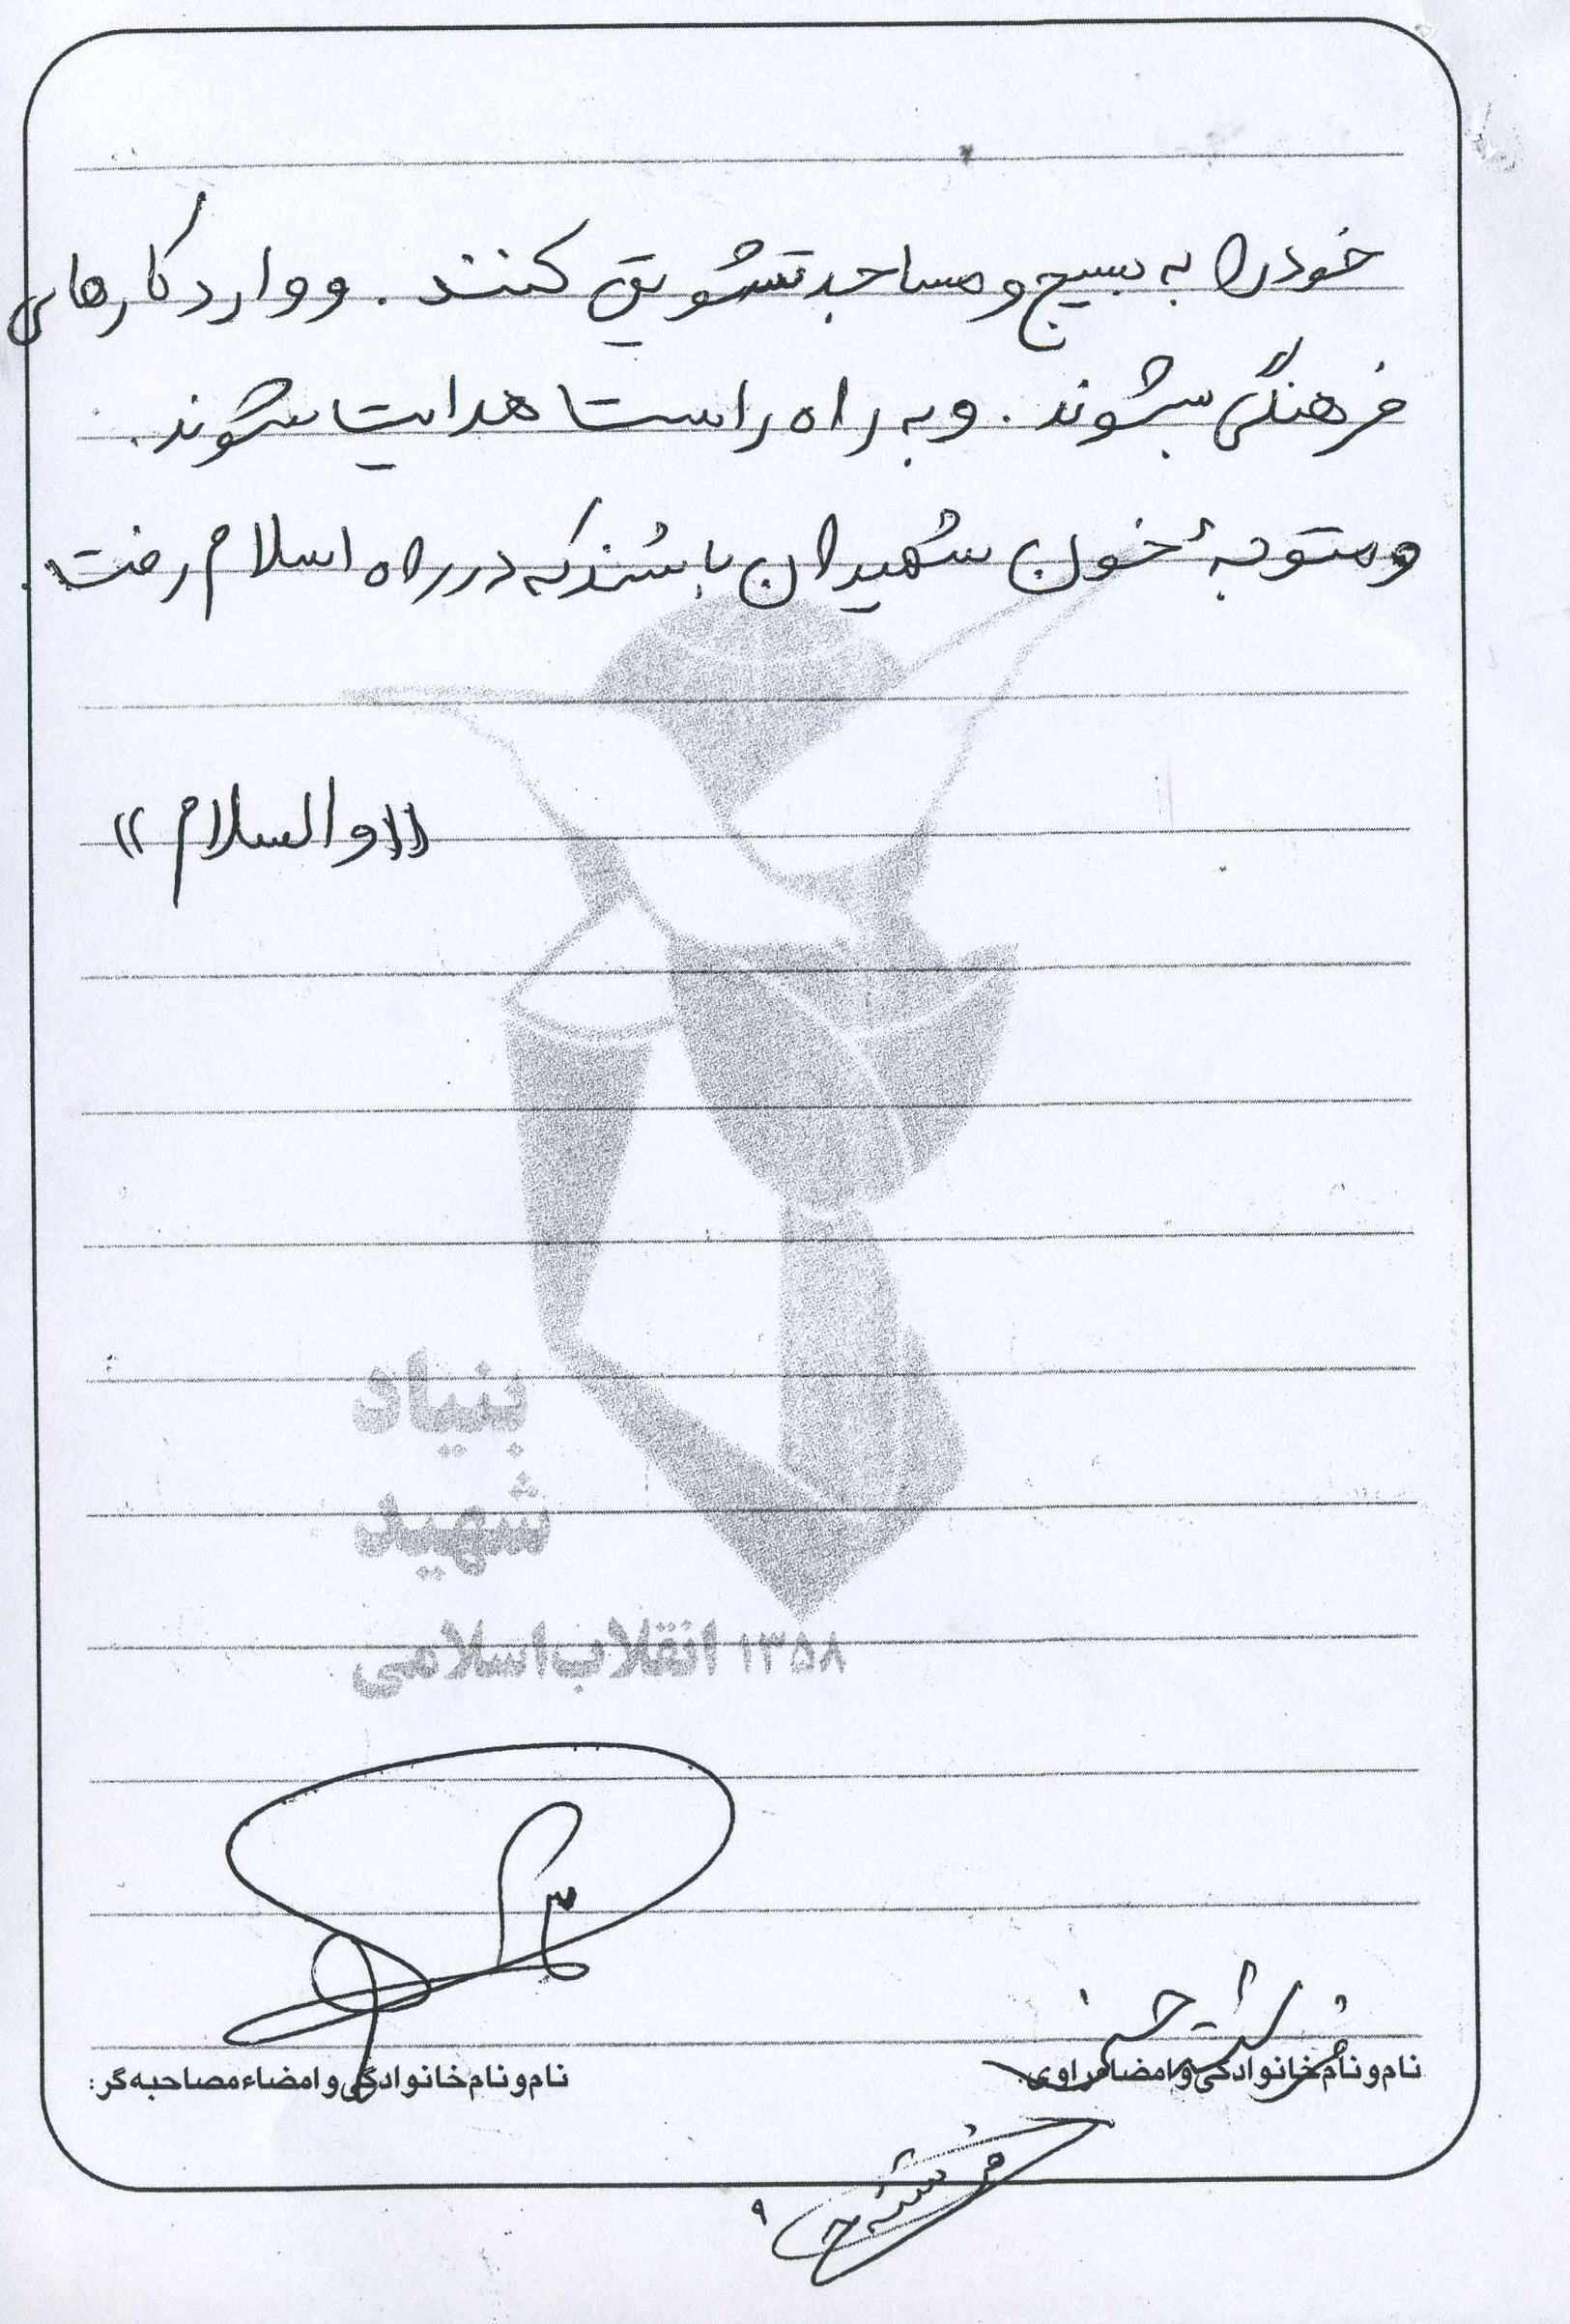 خود را به بسیج و مساجد تشویق کنند. و وارد کارهای
فرهنگی بشوند. و به راه راست هدایت شوند.
و متوجهٔ خون شهیدان باشند که در راه اسلام رفت.
((والسلام))
بنیاد
شهید
۱۳۵۸ انقلاب اسلامی
نام و نام خانوادگی و امضاء راوی:
نام و نام خانوادگی و امضاء مصاحبه گر:
فرشته